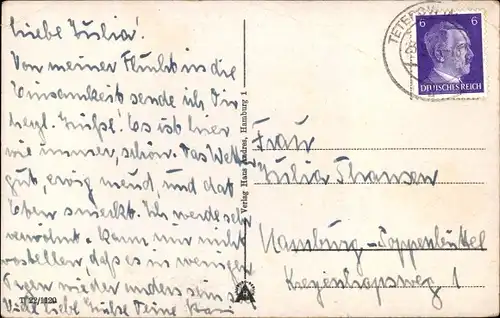 Liebe Julia!
Von meiner Flucht in die
Einsamkeit sende ich Dir
herzl. Grüße! Es ist hier
wie immer, schön. Das Wetter
gut, ewig und dat
Eten smeckt. Ich werde sehr
verwöhnt. Kann mir nicht
vorstellen, daß es in wenigen
Tagen wieder anders sein s
Viele liebe Grüße Deine
T 22/1120
Verlag Hans Andres, Hamburg 1
TETEROW
6 6
DEUTSCHES REICH
Frau
Julia
Hamburg-Poppenbüttel
1